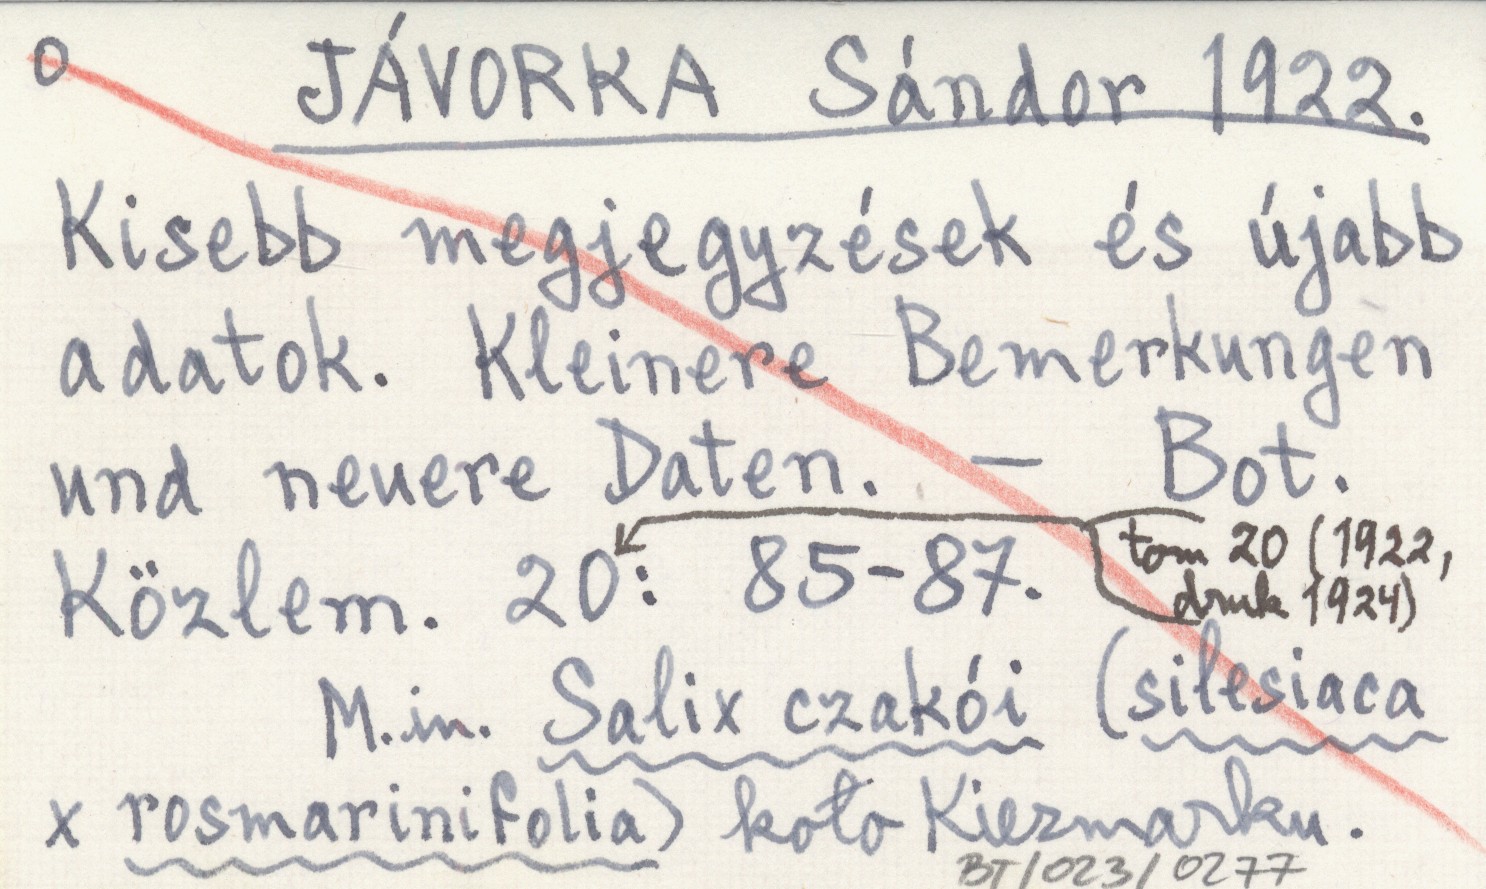 o JÁVORKA Sándor 1922.
Kisebb megjegyzések és újabb
adatok. Kleinere Bemerkungen
und neuere Daten. – Bot.
Közlem. 20: 85-87.
tom 20 (1922,
druk 1924)
M.in. Salix czakói (silesiaca
x rosmarinifolia) koło Kiezmarku.
BT/023/0277